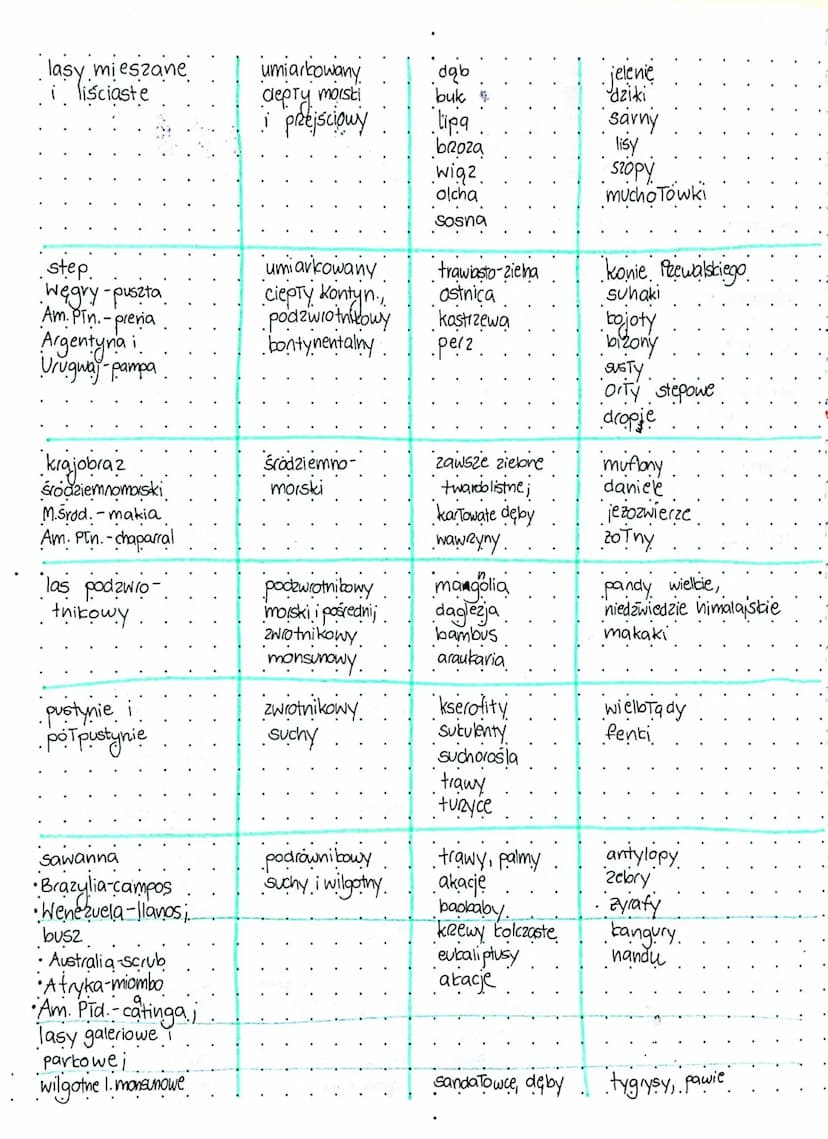 lasy mieszane
i liściaste
umiarkowany
ciepły morski
i przejściowy
dąb
buk
lipa
brzoza
wiąz
olcha
sosna
jelenie
dziki
sarny
lisy
szopy
muchołówki
step
Węgry-puszta
Am. Płn.-preria
Argentyna i
Urugwaj-pampa
umiarkowany
ciepły kontyn.,
podzwrotnikowy
kontynentalny
trawiasto-zielna
ostnica
kostrzewa
perz
konie Przewalskiego
suhaki
kojoty
bizony
susły
orły stepowe
dropie
krajobraz
śródziemnomorski
M.Śród.-makia
Am. Płn.-chaparral
śródziemno-
morski
zawsze zielone
twardolistne;
karłowate dęby
wawrzyny
muflony
daniele
jeżozwierze
żołny
las podzwro-
tnikowy
podzwrotnikowy
morski i pośredni;
zwrotnikowy
monsunowy
mangolia
daglezja
bambus
araukaria
pandy wielkie,
niedźwiedzie himalajskie
makaki
pustynie i
półpustynie
zwrotnikowy
suchy
kserofity
sukulenty
suchorośla
trawy
turzyce
wielbłądy
fenki
sawanna
•Brazylia-campos
•Wenezuela-llanos;
busz
• Australia-scrub
•Afryka-miombo
•Am. Płd.-catinga;
lasy galeriowe i
parkowe;
wilgotne l. monsunowe
podrównikowy
suchy i wilgotny
trawy, palmy
akacje
baobaby
krzewy kolczaste
eukaliptusy
akacje
sandałowce, dęby
antylopy
zebry
żyrafy
kangury
nandu
tygrysy, pawie